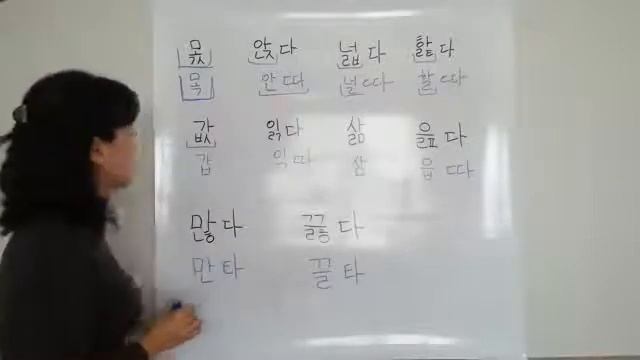 몫 앉다 넓다 핥다
목 안따 널따 할따
값 읽다 삶 읊다
갑 익따 삼 읍따
많다 끓다
만타 끌타